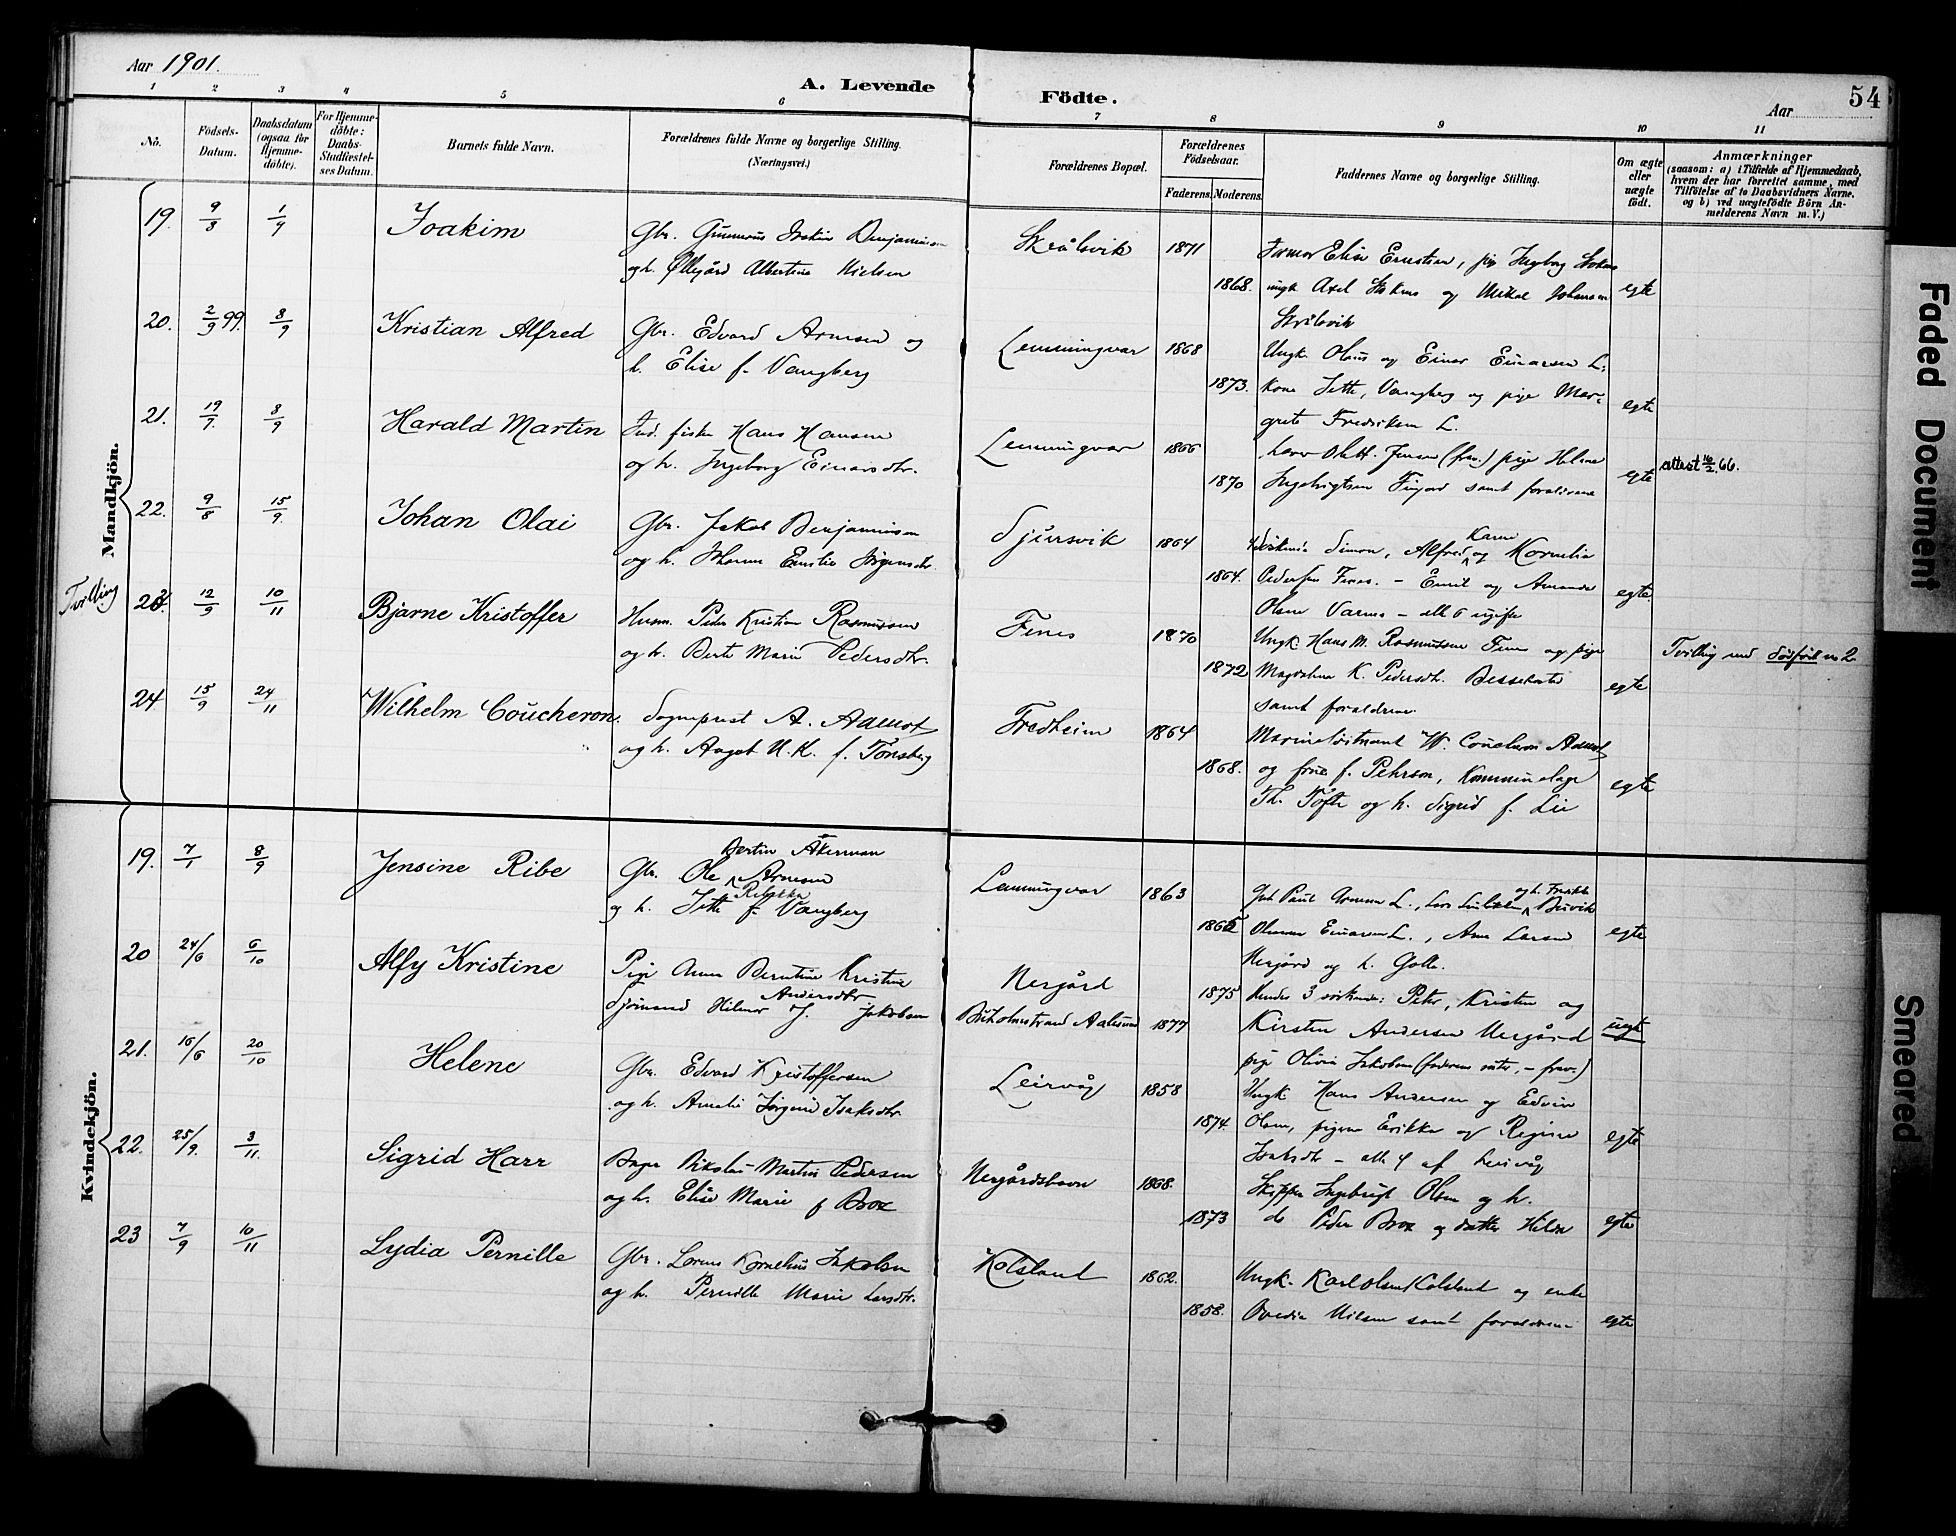 Aar 1901.
A. Levende Födte.
Aar
54
1 2 3 4 5 6 7 8 9 10 11
No.
Födsels-Datum.
Daabsdatum (ogsaa for Hjemme-döbte).
For Hjemme-döbte: Daabs-Stadfæstel-ses Datum.
Barnets fulde Navn.
Forældrenes fulde Navne og borgerlige Stilling. (Næringsvei.)
Forældrenes Bopæl.
Forældrenes Födselsaar.
Faderens. Moderens.
Faddernes Navne og borgerlige Stilling.
Om ægte eller uægte födt.
Anmærkninger
(saasom: a) i Tilfælde af Hjemmedaab, hvem der har forrettet samme, med Tilföielse af to Daabsvidners Navne, og b) ved uægtefödte Börn An-melderens Navn m. V.)
Mandkjön.
19. 9/8 1/9 Joakim
Gbr. Gunnerus Benjaminsen
og h. Albertine Nielsen
1871
1868.
Farmor Elise Ernstsen, pige Ingborg
ungk Axel og Mikal Johansen
egte
20. 2/9 99. 8/9 Kristian Alfred
Gbr. Edvard Arnesen og
h. Elise f. Vangberg
Lemmingvær 1868
1873.
Ungk. Olaus og Einar Einarsen L.
Kone Jette Vangberg og pige Mar-
grete Fredriksen L.
egte
21. 19/7. 8/9 Harald Martin
Ind. fisker Hans Hansen
og h. Ingeborg Einarsdtr.
Lemmingvær 1866
1870
Jensen (frav.) pige Helene
samt forældrene
egte
attest 66.
22. 9/8 15/9. Johan Olai
Gbr. Jakob Benjaminsen
og h. Johanna Emilie Jörgensdtr.
1864
1864.
Simon, Alfred, Karen og Kornelia
Pedersen Fenes. – Emil og Amanda
Olsen – alle 6 ugifte
egte.
Tvilling 23. 12/9 10/11 Bjarne Kristoffer
Husm. Peder Kristian Rasmussen
og h. Berte Marie Pedersdtr.
Fenes 1870
1872
Ungk. Hans M. Rasmussen Fenes og pige
Magdalena K. Pedersdtr.
samt forældrene.
egte
Tvilling med dödfödt no 2.
24 15/9 24/11 Wilhelm Coucheron.
Sogneprest A. Aamot
og h. Aagot U. K. f. Tönsberg
Fredheim 1864
1868.
W. Coucheron Aamot
og frue f. Pehrson, Kommunelæge
Th. Tofte og h. Sigrid f. Lie
egte
Kvindekjön.
19. 7/1 8/9 Jensine Ribe
Gbr. Ole Bertin Åkerman Arnesen
og h. Jette Rebekka f. Vangberg
Lemmingvær 1863
1865
Gbr. Paul Arnesen L., Lars og h. Fredrikke
Einarsen L., Arne Larsen
Nergård og h. Golla.
egte
20 24/6 6/10 Alfy Kristine
Pige Anna Berntine Kristine Andersdtr
Sjömand Hilmar J. Jakobsen
Nergård
Aalesund
1875
1877
Hendes 3 söskende: Peter, Kristen og
Kirsten Andersen Nergård
pige Olivia Jakobsen (faderens söster, – frav.)
uegte
21. 16/6 20/10 Helene
Gbr. Edvard Kristoffersen
og h. Amalie Jörgine Isaksdtr.
Leirvåg 1858
1874.
Ungk. Hans Andersen og Edvin
Olsen, pigerne Erikka og Regine
Isaksdtr – alle 4 af Leirvåg
egte
22. 25/9. 3/11. Sigrid Harr
Bager Nikolai Martin Pedersen
og h. Elise Marie f. Brox
Nergårdshavn 1868.
1873
Skipper Ingebrigt Olsen og h.
do Peder Brox og datter Hilda
egte
23 7/9 10/11 Lydia Pernille
Gbr. Lorens Kornelius Jakobsen
og h. Pernille Marie Larsdtr.
Kolsland 1862.
1858.
Ungk. Karl Olsen Kolsland og enke
Ovedia Nilsen samt forældrene
egte
Faded Document
Smeared